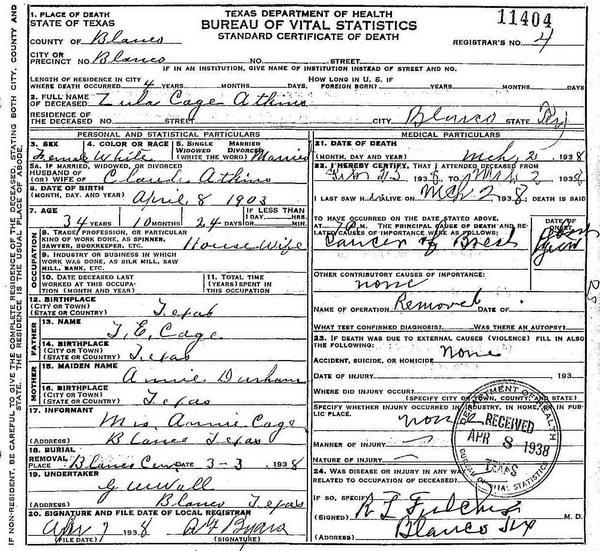 TEXAS DEPARTMENT OF HEALTH
BUREAU OF VITAL STATISTICS
STANDARD CERTIFICATE OF DEATH
11404
REGISTRAR'S NO. 4
1. PLACE OF DEATH
STATE OF TEXAS
COUNTY OF Blanco
CITY OR
PRECINCT NO. Blanco NO. STREET
IF IN AN INSTITUTION, GIVE NAME OF INSTITUTION INSTEAD OF STREET AND NO.
LENGTH OF RESIDENCE IN CITY
WHERE DEATH OCCURRED 4 YEARS MONTHS DAYS. HOW LONG IN U. S. IF FOREIGN BORN? YEARS MONTHS DAYS
2. FULL NAME
OF DECEASED Lula Cage Atkins
RESIDENCE OF
THE DECEASED NO. STREET CITY Blanco STATE
PERSONAL AND STATISTICAL PARTICULARS
3. SEX 4. COLOR OR RACE 5. SINGLE MARRIED
WIDOWED DIVORCED
Female White (WRITE THE WORD) Married
5A. IF MARRIED, WIDOWED, OR DIVORCED
HUSBAND OF
(OR) WIFE OF Claud Atkins
6. DATE OF BIRTH
April 8 1903
7. AGE IF LESS THAN
34 YEARS 10 MONTHS 24 DAYS 1 DAY
OCCUPATION
8. TRADE, PROFESSION, OR PARTICULAR
KIND OF WORK DONE, AS SPINNER,
SAWYER, BOOKKEEPER, ETC. House Wife
9. INDUSTRY OR BUSINESS IN WHICH
WORK WAS DONE, AS SILK MILL, SAW
MILL, BANK, ETC.
10. DATE DECEASED LAST WORKED AT THIS OCCUPATION (MONTH AND YEAR)
11. TOTAL TIME (YEARS) SPENT IN THIS OCCUPATION
12. BIRTHPLACE
(CITY OR TOWN)
(STATE OR COUNTRY) Texas
FATHER
13. NAME T. E. Cage
14. BIRTHPLACE
(CITY OR TOWN)
(STATE OR COUNTRY) Texas
MOTHER
15. MAIDEN NAME Annie Durham
16. BIRTHPLACE
(CITY OR TOWN)
(STATE OR COUNTRY) Texas
17. INFORMANT
Mrs. Annie Cage
(ADDRESS) Blanco Texas
18. BURIAL
REMOVAL
PLACE Blanco Cem DATE 3-3 1938
19. UNDERTAKER
(ADDRESS) Blanco Texas
20. SIGNATURE AND FILE DATE OF LOCAL REGISTRAR
Apr 7 1938
(FILE DATE) (SIGNATURE)
MEDICAL PARTICULARS
21. DATE OF DEATH
(MONTH, DAY AND YEAR) Mch 2 1938
22. I HEREBY CERTIFY, THAT I ATTENDED DECEASED
FROM
I LAST SAW H ALIVE ON Mch 2 1938, DEATH IS SAID
TO HAVE OCCURRED ON THE DATE STATED ABOVE,
AT M. THE PRINCIPAL CAUSE OF DEATH AND RELATED CAUSES OF IMPORTANCE WERE AS FOLLOWS:
DATE OF ONSET
Cancer of Breast
OTHER CONTRIBUTORY CAUSES OF IMPORTANCE:
none
NAME OF OPERATION Removed DATE OF
WHAT TEST CONFIRMED DIAGNOSIS? WAS THERE AN AUTOPSY?
23. IF DEATH WAS DUE TO EXTERNAL CAUSES (VIOLENCE) FILL IN ALSO
THE FOLLOWING:
ACCIDENT, SUICIDE, OR HOMICIDE None
DATE OF INJURY 193
WHERE DID INJURY OCCUR?
(SPECIFY CITY OR TOWN, COUNTY, AND STATE)
SPECIFY WHETHER INJURY OCCURRED IN INDUSTRY, IN HOME, OR IN PUBLIC PLACE.
none
MANNER OF INJURY
NATURE OF INJURY
24. WAS DISEASE OR INJURY IN ANY WAY
RELATED TO OCCUPATION OF DECEASED?
IF SO, SPECIFY
(SIGNED) M. D.
(ADDRESS) Blanco Tex
RECEIVED
APR 8 1938
TEXAS